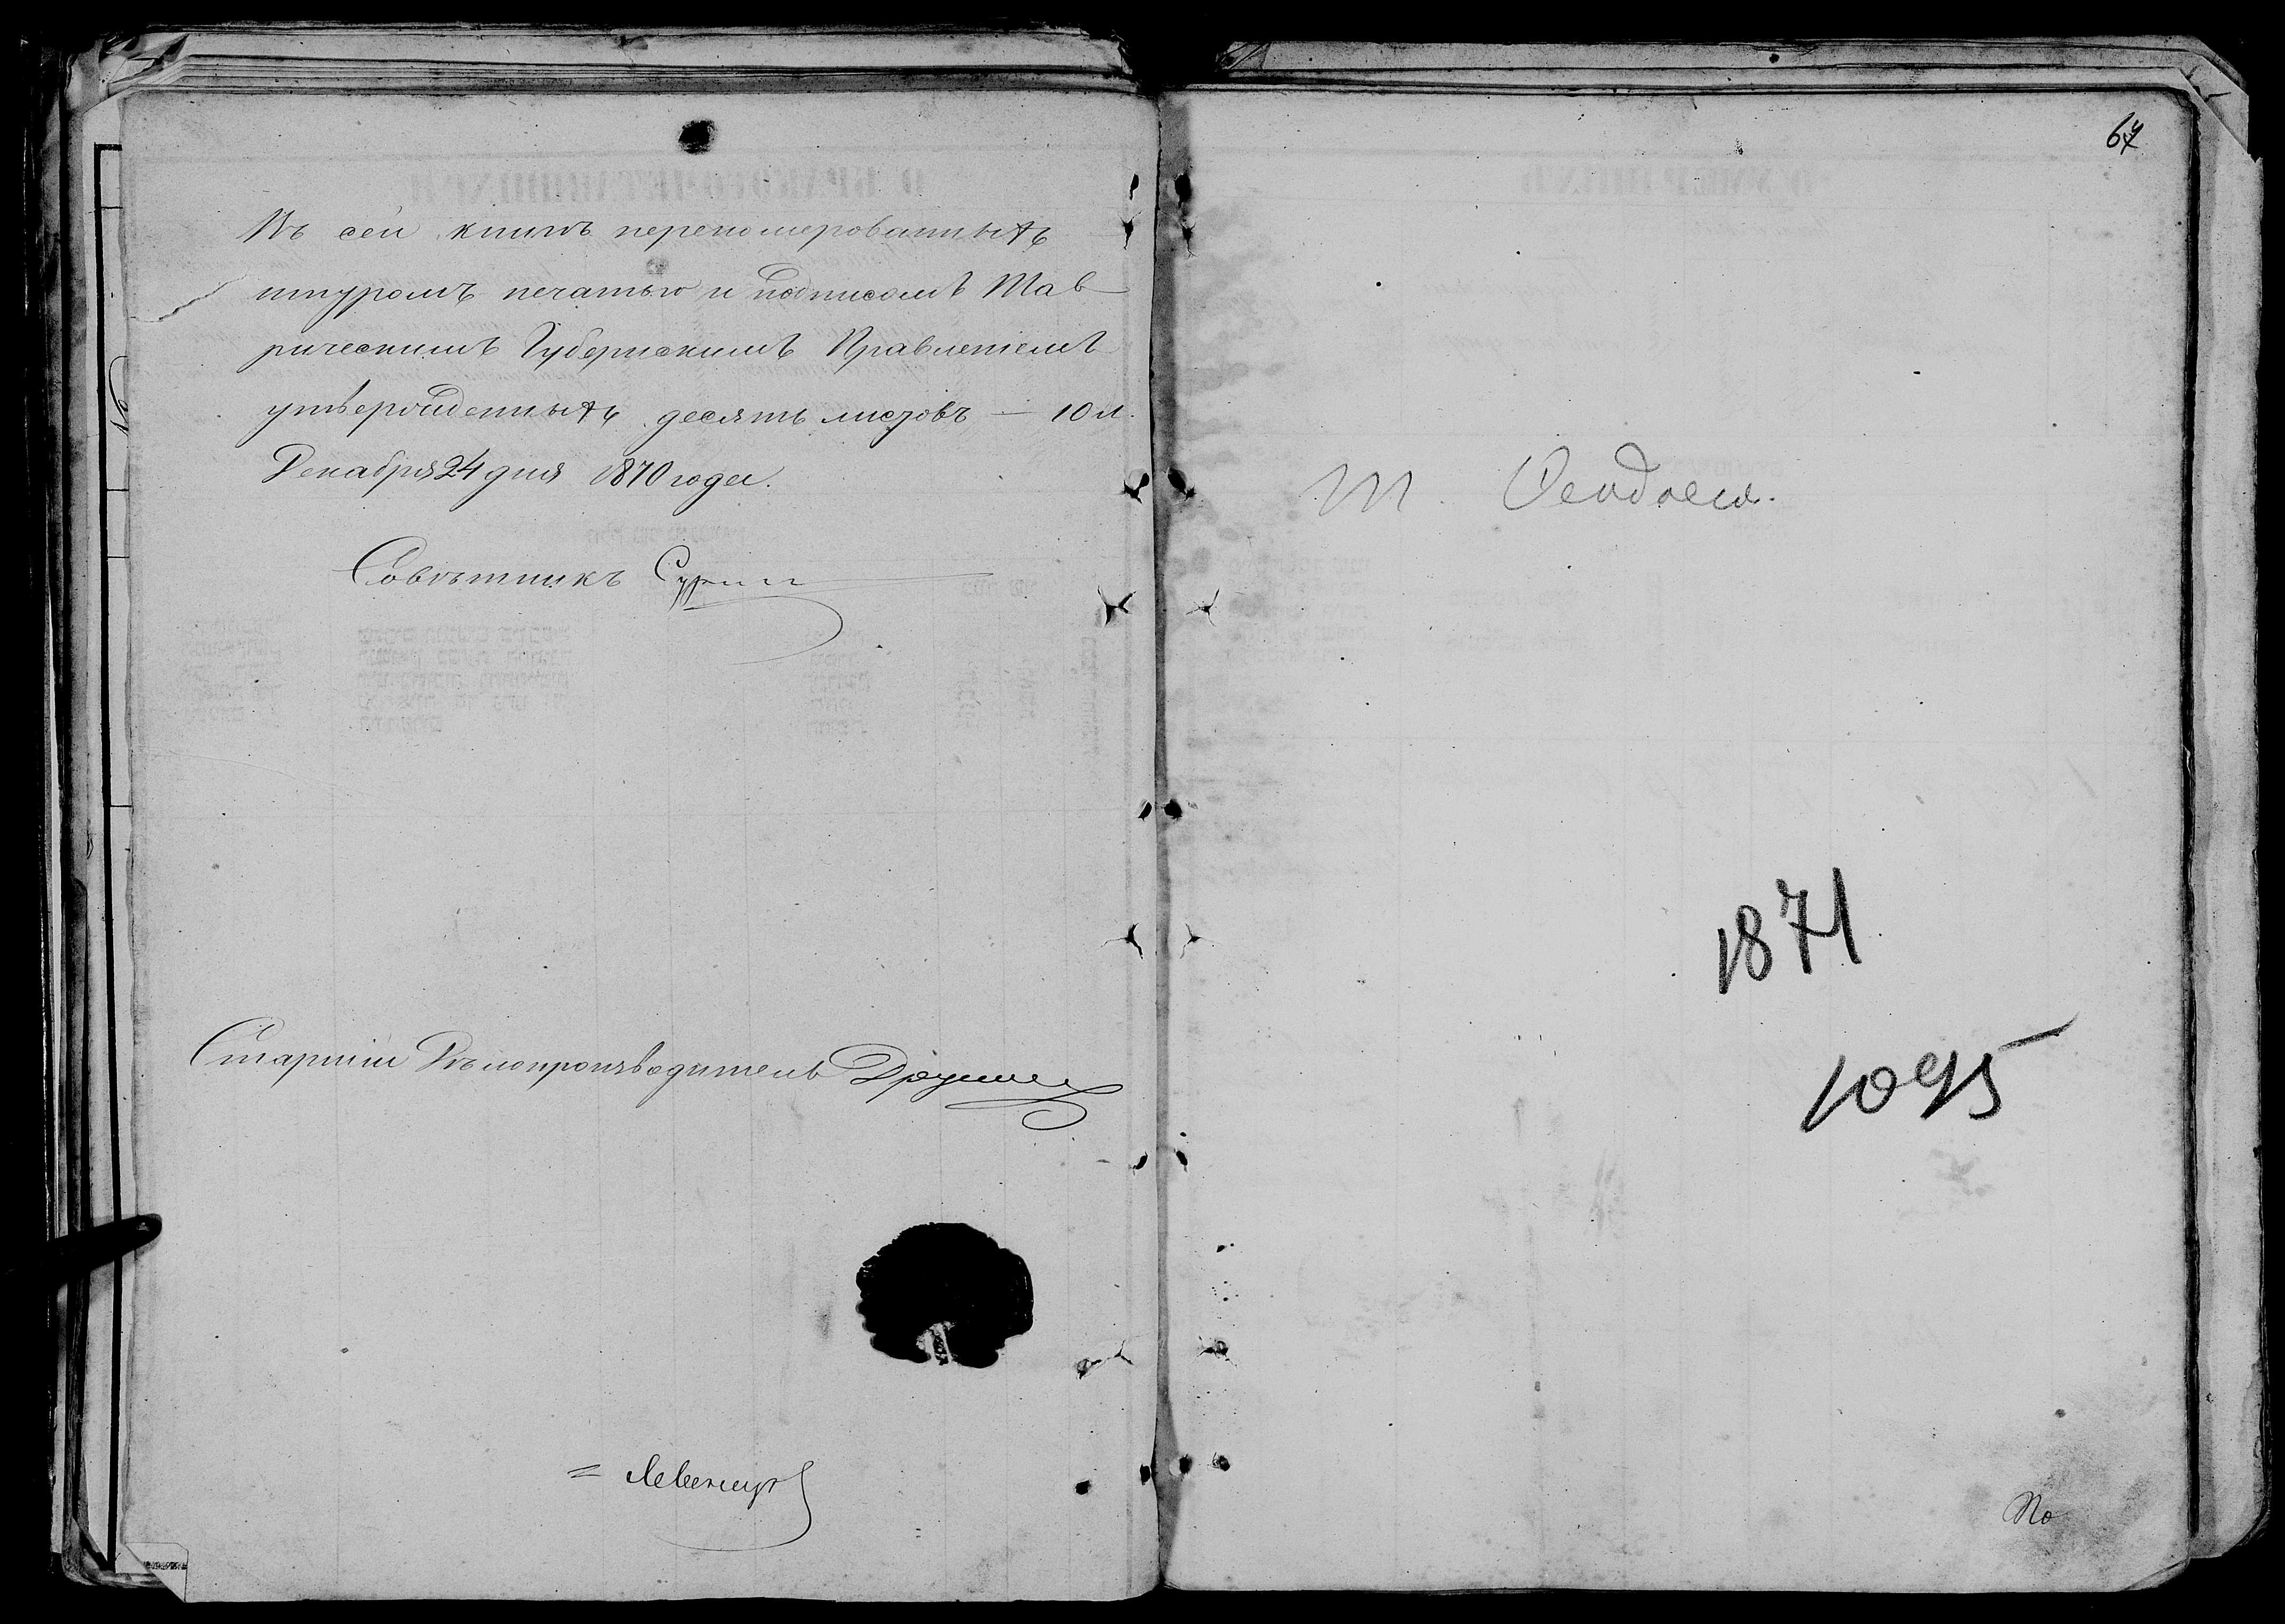 Въ сей книгѣ перепомерованныхъ
шнуромъ печатью и подписомъ Тав-
рическимъ Губернскимъ Правленіемъ
утвержденныхъ десять листовъ — 10 л.
Декабря 24 дня 1870 года.
Совѣтникъ
Старшій Дѣлопроизводитель
64
Т. Ѳеодосія.
1871
1095
По